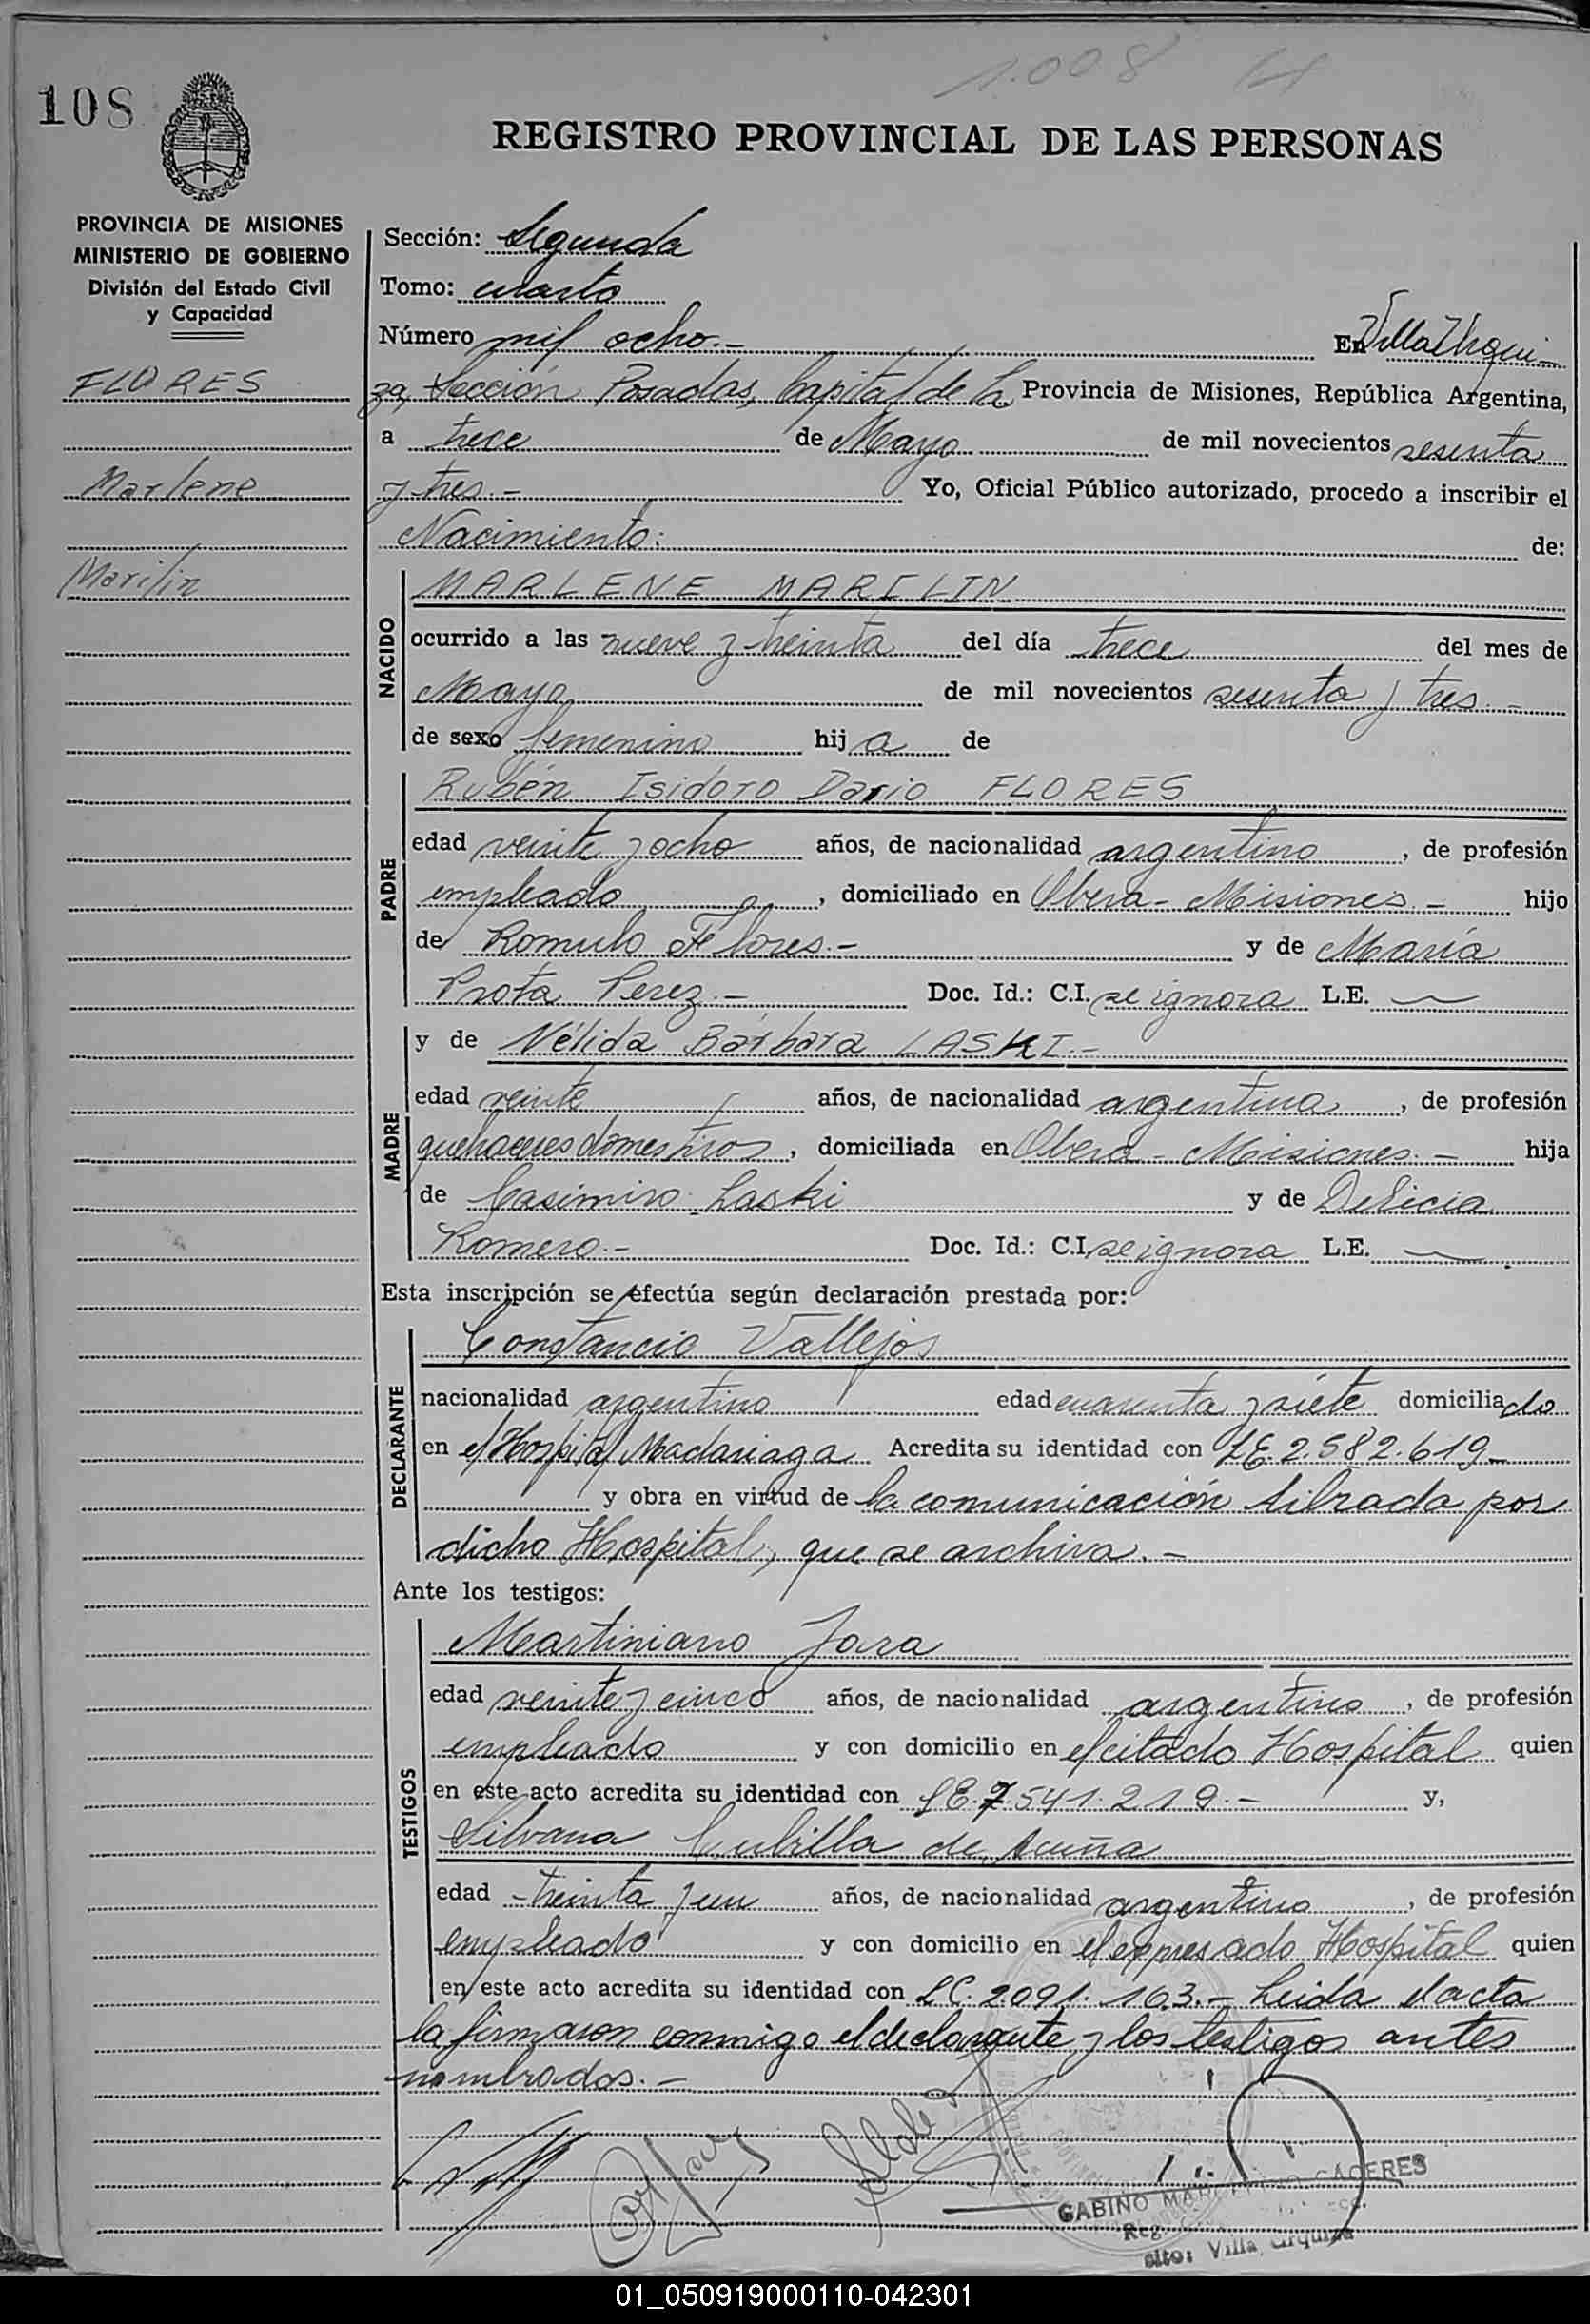 1.008
108
REGISTRO PROVINCIAL DE LAS PERSONAS
PROVINCIA DE MISIONES
MINISTERIO DE GOBIERNO
División del Estado Civil
y Capacidad
FLORES
Marlene
Marilin
Sección: Segunda
Tomo: cuarto
Número mil ocho.- En Villa Urqui-
za, Sección Posadas, Capital de la Provincia de Misiones, República Argentina,
a trece de Mayo de mil novecientos sesenta
y tres.- Yo, Oficial Público autorizado, procedo a inscribir el
Nacimiento: de:
NACIDO
MARLENE MARILIN
ocurrido a las nueve y treinta del día trece del mes de
Mayo de mil novecientos sesenta y tres.-
de sexo femenino hija de
PADRE
Rubén Isidoro Dario FLORES
edad veinte y ocho años, de nacionalidad argentino, de profesión
empleado, domiciliado en Obera - Misiones.- hijo
de Romulo Flores.- y de María
Prota Perez.- Doc. Id.: C.I. se ignora L.E. —
MADRE
y de Nélida Bárbara LASKI.-
edad veinte años, de nacionalidad argentina, de profesión
quehaceres domesticos, domiciliada en Obera - Misiones.- hija
de Casimiro Laski y de Delicia
Romero.- Doc. Id.: C.I. se ignora L.E. —
Esta inscripción se efectúa según declaración prestada por:
DECLARANTE
Constancio Vallejos
nacionalidad argentino edad cuarenta y siete domiciliado
en el Hospital Madariaga Acredita su identidad con LE. 2.582.619-
y obra en virtud de la comunicación librada por
dicho Hospital, que se archiva.-
Ante los testigos:
TESTIGOS
Martiniano Jara
edad veinte y cinco años, de nacionalidad argentino, de profesión
empleado y con domicilio en el citado Hospital quien
en este acto acredita su identidad con LE. 7.541.219.- y,
Silvana Cubilla de Acuña
edad treinta y un años, de nacionalidad argentino, de profesión
empleado y con domicilio en el expresado Hospital quien
en este acto acredita su identidad con LC. 2.091.163.- Leida el acta
la firmaron conmigo el declarante y los testigos antes
nombrados.-
GABINO CACERES
Reg.
Villa Urquiza
01_050919000110-042301